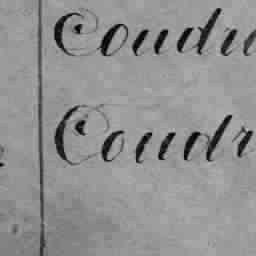 Coudr
Coudr